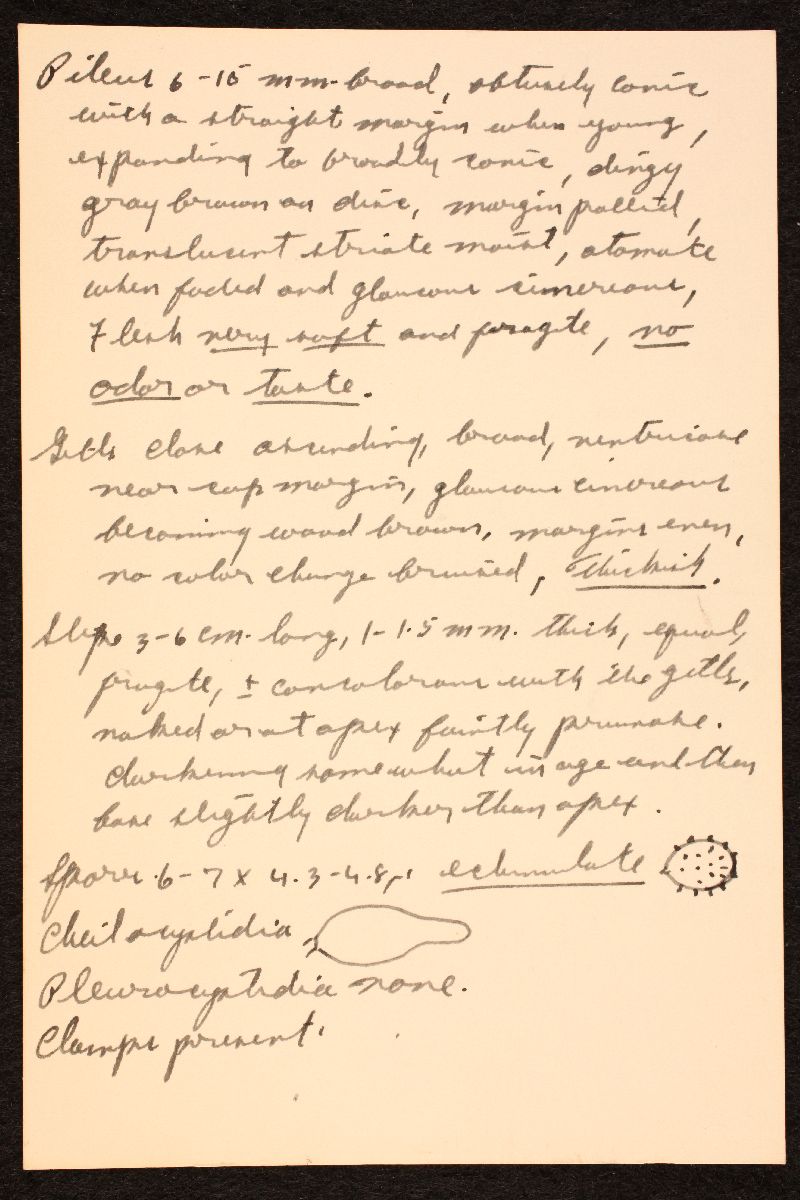 Pileus 6-15 mm. broad, obtusely conic
with a straight margin when young,
expanding to broadly conic, dingy
gray brown on disc, margin pallid,
translucent striate moist, atomate
when faded and glaucous cinereous,
Flesh very soft and fragile, no
odor or taste.
Gills close ascending, broad, ventricose
near cap margin, glaucous cinereous
becoming wood brown, margins even,
no color change bruised, thickish.
Stipe 3-6 cm. long, 1-1.5 mm. thick, equal,
fragile, ± concolorous with the gills,
naked or at apex faintly pruinose.
darkening somewhat in age and then
base slightly darker than apex.
Spores 6-7 x 4.3-4.8 µ echinulate
Cheilocystidia
Pleurocystidia none.
Clamps present.